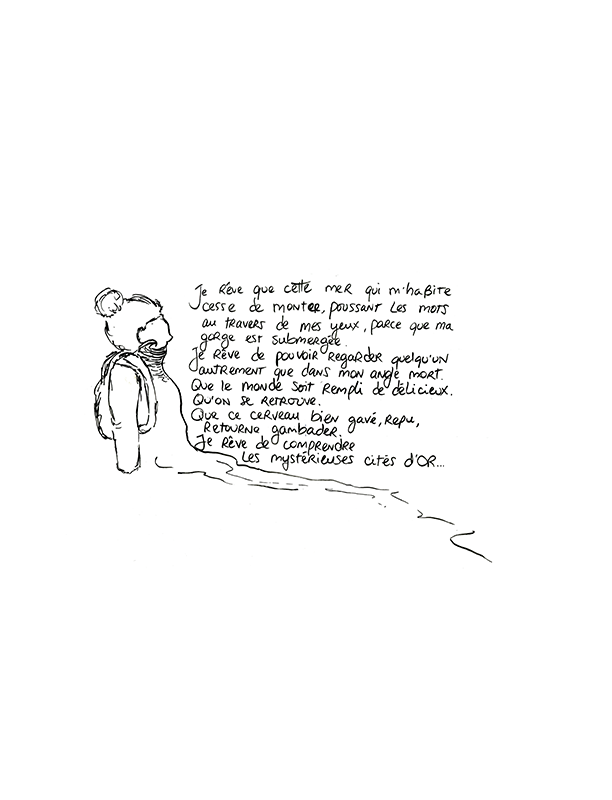 Je rêve que cette mer qui m'habite
cesse de monter, poussant les mots
au travers de mes yeux, parce que ma
gorge est submergée.
Je rêve de pouvoir regarder quelqu'un
autrement que dans mon angle mort.
Que le monde soit rempli de délicieux.
Qu'on se retrouve.
Que ce cerveau bien gavé, repu,
retourne gambader.
Je rêve de comprendre
les mystérieuses cités d'or...